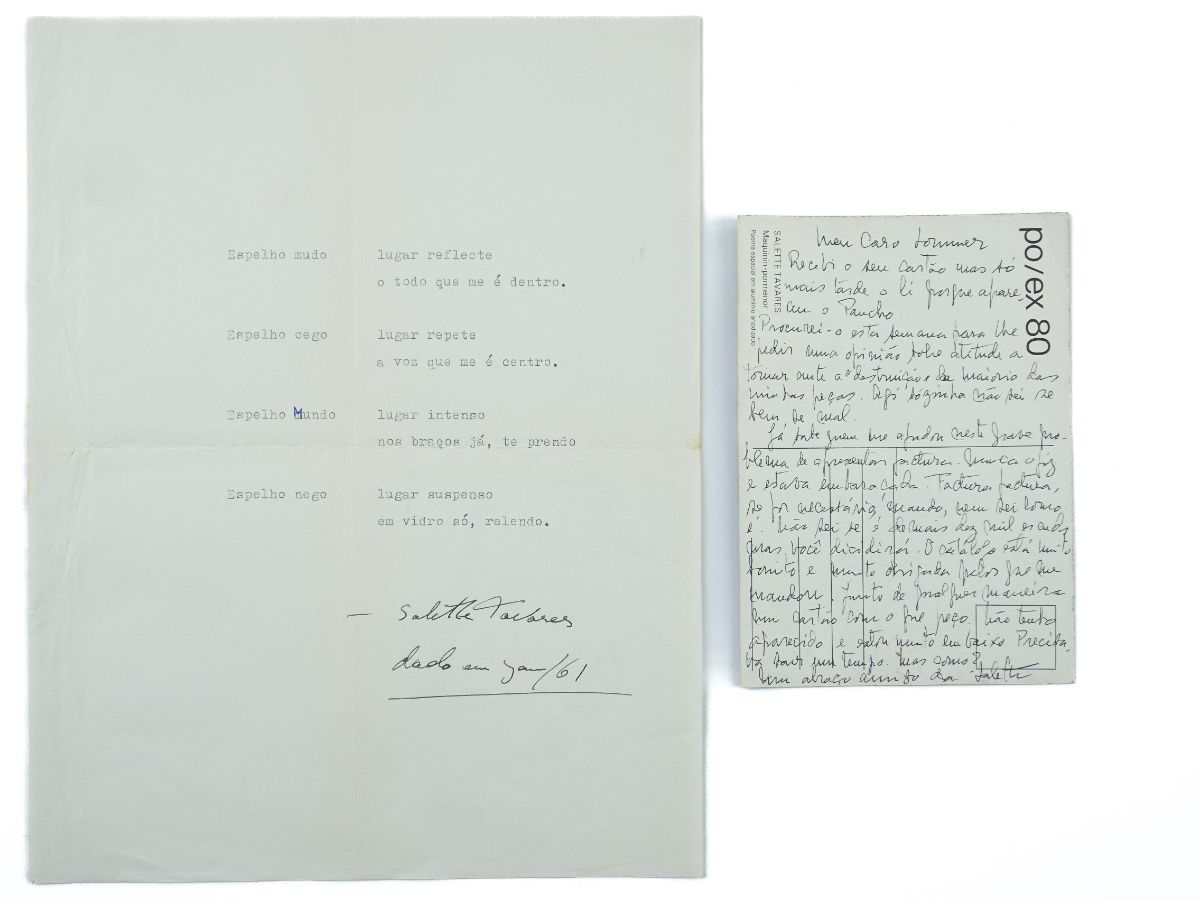 Espelho mudo lugar reflecte
o todo que me é dentro.
Espelho cego lugar repete
a voz que me é centro.
Espelho Mundo lugar intenso
nos braços já, te prendo
Espelho nego lugar suspenso
em vidro só, relendo.
— Salette Tavares
dado em Jan/61
po/ex 80
SALETTE TAVARES
Maquinin-pormenor
Poema espacial em alumínio anodizado
Meu Caro Sommer
Recebi o seu cartão mas só
mais tarde o li porque apare-
ceu o Pancho.
Procurei-o esta semana para lhe
pedir uma opinião sobre atitude a
tomar ante a "destruição" da maioria das
minhas peças. Agi sózinha não sei se
bem, se mal.
Já sabe quem me ajudou neste grave pro-
blema de apresentar factura. Nunca o fiz
e estava embaraçada. Factura factura,
se for necessária, quando, nem sei como
é. Não sei se é demais dez mil escudos
mas você dicidirá. O catálogo está muito
bonito e muito obrigada pelos que me
mandou. Junto de qualquer maneira
um cartão com o que peço. Não tenho
aparecido e estou muito em baixo. Precisa-
va sair um tempo. mas como?
Um abraço amigo da Salette